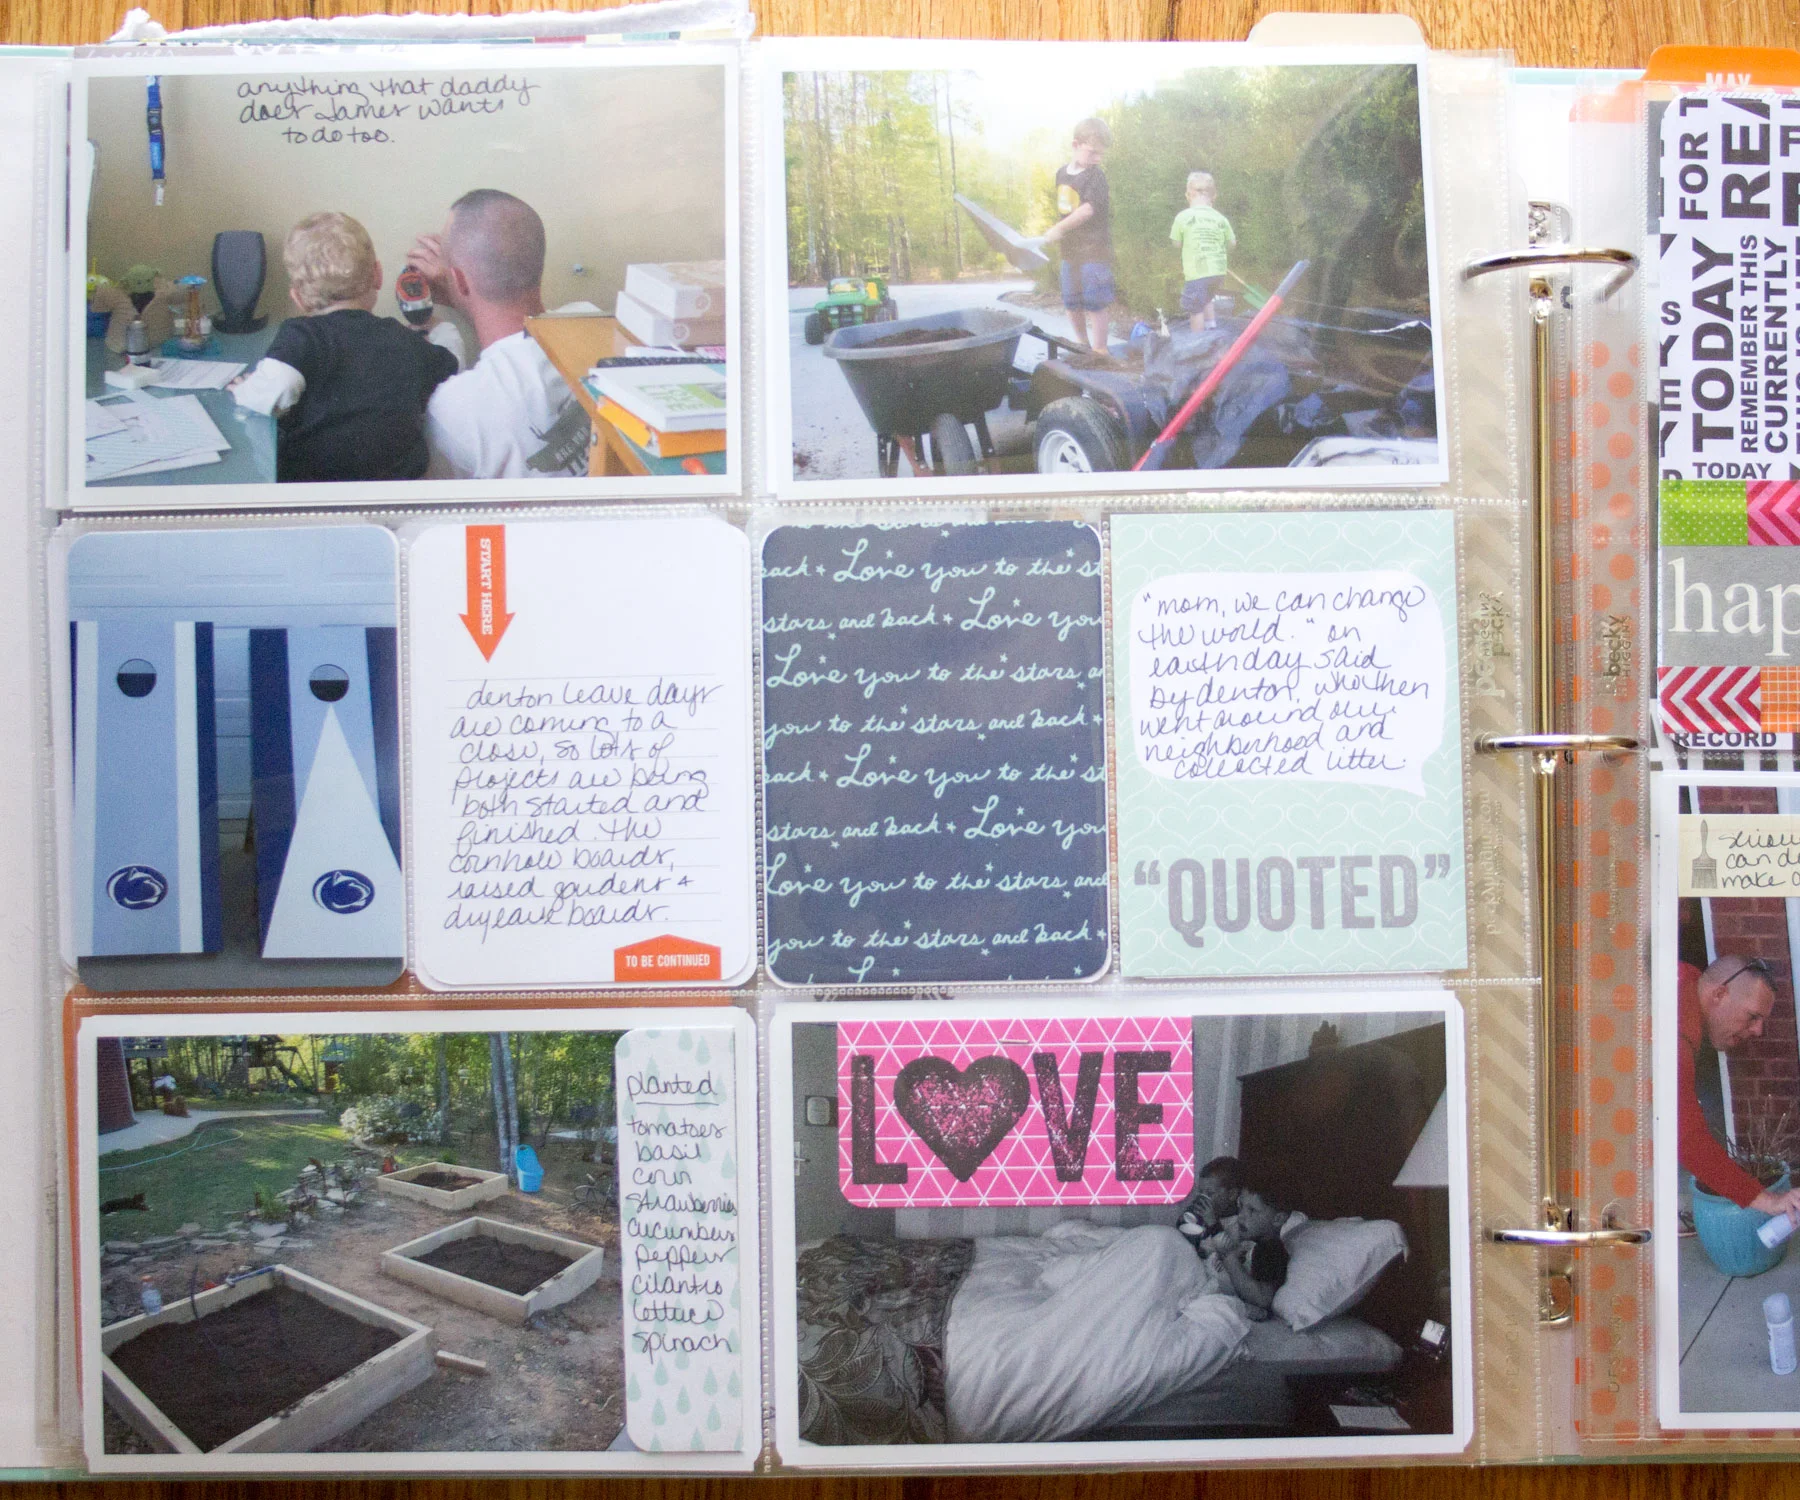 anything that daddy
does James wants
to do too.
MAY
START HERE
denton leave days
are coming to a
close, so lots of
projects are being
both started and
finished. the
cornhole boards,
raised gardens +
dry erase boards.
TO BE CONTINUED
back * Love you to the st
stars and back * Love you
Love you to the stars a
you to the stars and back *
back * Love you to the st
stars and back * Love you
Love you to the stars and
you to the stars and back *
"mom, we can change
the world." on
earth day said
by denton, who then
went around our
neighborhood and
collected litter.
"QUOTED"
planted
tomatoes
basil
corn
strawberries
cucumbers
peppers
cilantro
lettuce
spinach
LOVE
FOR
TODAY
REMEMBER THIS
CURRENTLY
TODAY
hap
RECORD
becky
can d
make a